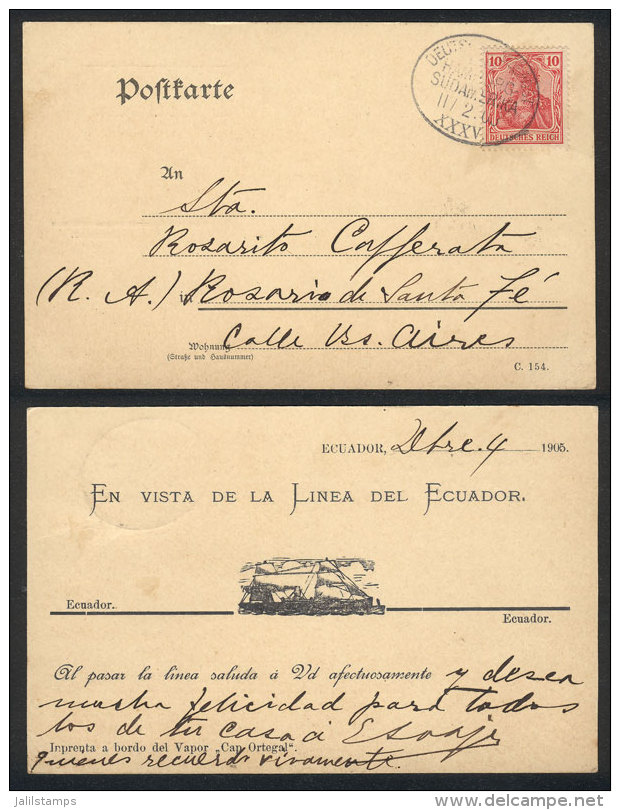 Postkarte
DEUTSCHES REICH
10 10
SÜDAMERIKA
XXXV
An
Sta.
Rosarito Cafferata
(R. A.) Rosario de Santa Fé
Calle Bs. Aires
Wohnung
(Straße und Hausnummer)
C. 154.
ECUADOR, Dbre. 4 1905.
EN VISTA DE LA LINEA DEL ECUADOR.
Ecuador.
Ecuador.
Al pasar la linea saluda á Vd afectuosamente y desea
mucha felicidad para todos
los de tu casa á
Inprenta a bordo del Vapor „Cap Ortegal“.
quienes recuerda vivamente.
jalilstamps
www.delcampe.net